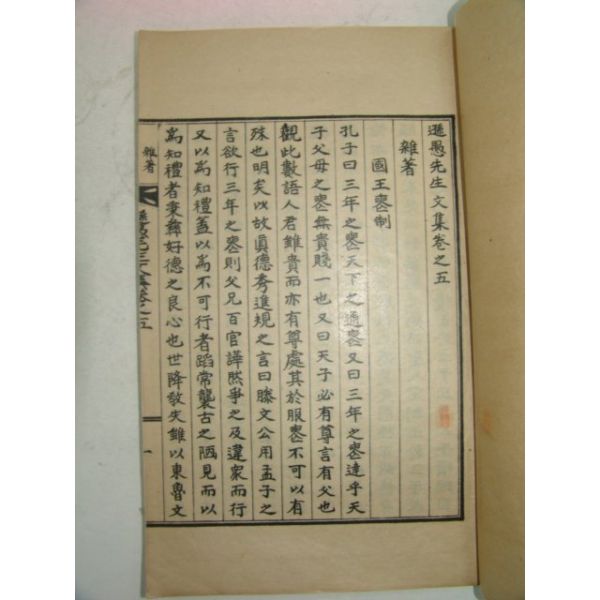 遯愚先生文集卷之五
雜著
國王喪制
孔子曰三年之喪天下之通喪又曰三年之喪達乎天
子父母之喪無貴賤一也又曰天子必有尊言有父也
觀此數語人君雖貴而亦有尊處其於服喪不可以有
殊也明矣以故眞德秀進規之言曰滕文公用孟子之
言欲行三年之喪則父兄百官譁然爭之及違衆而行
又以爲知禮蓋以爲不可行者蹈常襲古之陋見而以
爲知禮者秉彛好德之良心也世降敎失雖以東魯文
雜著
一